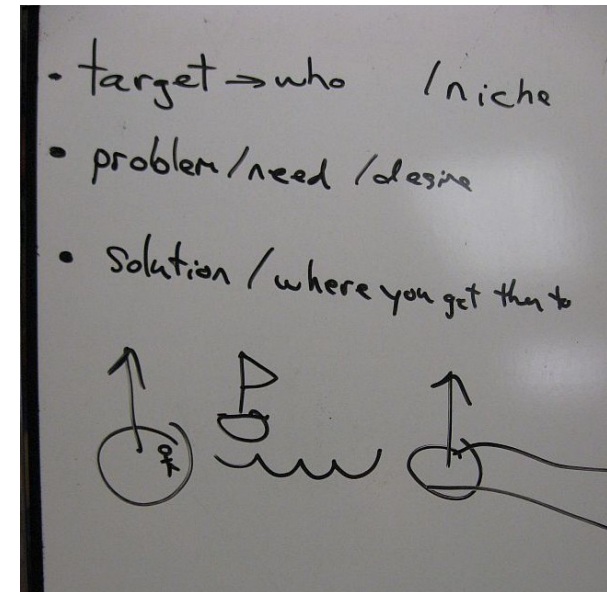 • target → who /niche
• problem/need /desire
• solution / where you get them to